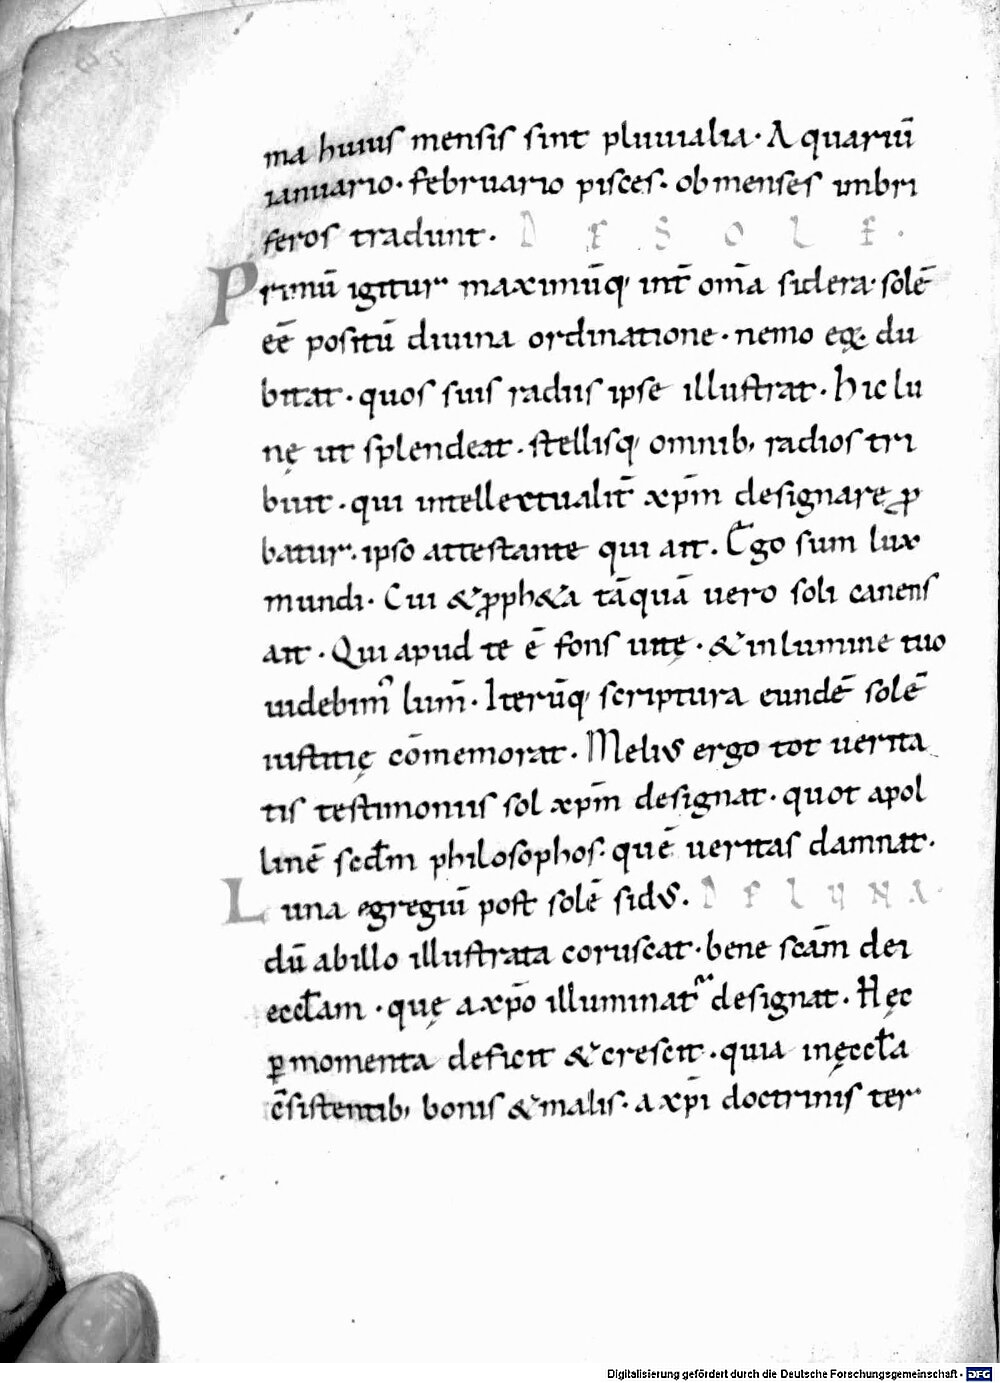 ma huius mensis sint pluuialia· Aquariũ
ianuario· februario pisces· ob menses imbri
feros tradunt· DE SOLE·
Primũ igitur maximũq; int̄ om̄a sidera· solē
eē positũ diuina ordinatione· nemo eq; du
bitat· quos suis radiis ipse illustrat· Hic lu
nę ut splendeat· stellisq; omnib; radios tri
buit· qui intellectualit̄ xp̄m designare ꝓ
batur· ipso attestante qui ait· Ego sum lux
mundi· Cui & ꝓph&a tāquā uero soli canens
ait· Qui apud te ē fons uitę· & in lumine tuo
uidebim᾿ lum̄· Iterũq; scriptura eundē solē
iustitię cōmemorat· Melius ergo tot uerita
tis testimoniis sol xp̄m designat· quot apol
linē scd̄m philosophos· quē ueritas damnat·
Luna egregiũ post solē sidus· DE LUNA·
dũ ab illo illustrata coruscat· bene scām dei
eccl̄am· quę a xp̄o illuminat᾿ designat· Hęc
ꝑ momenta deficit & crescit· quia in ęccl̄a
c̄sistentib; bonis & malis· a xp̄i doctrinis ter
Digitalisierung gefördert durch die Deutsche Forschungsgemeinschaft - DFG